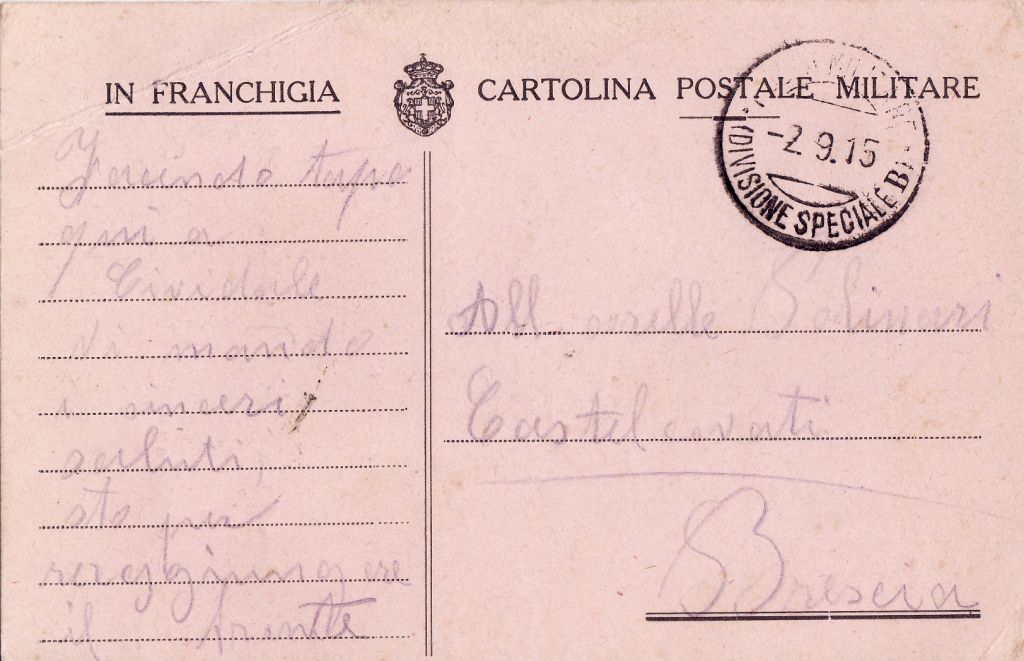 IN FRANCHIGIA
CARTOLINA POSTALE MILITARE
-2.9.15
(DIVISIONE SPECIALE B)
Facendo tapa
qui a
Cividale
Vi mando
i sinceri
saluti,
sto per
il fronte
All. sorelle Salinari
Castelcovati
Brescia